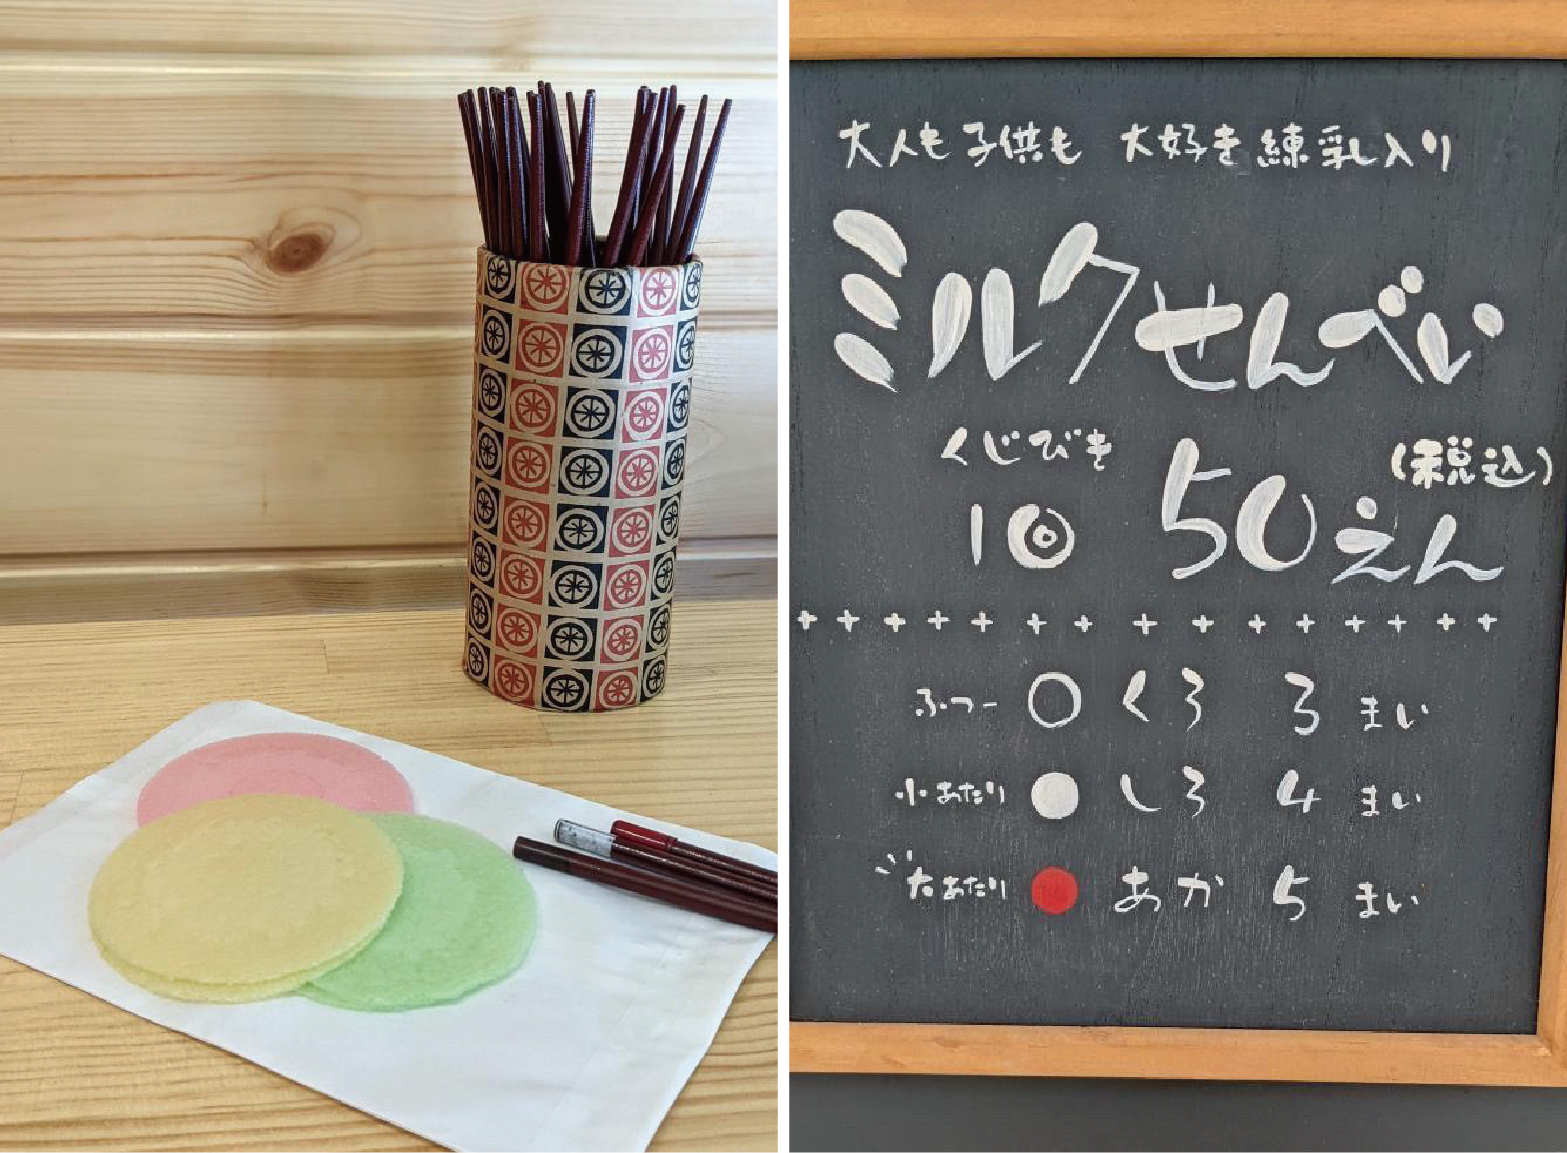 大人も子供も 大好き練乳入り
ミルクせんべい
くじびき
1回 50えん (税込)
ふつー くろ 3まい
小あたり しろ 4まい
大あたり あか 5まい